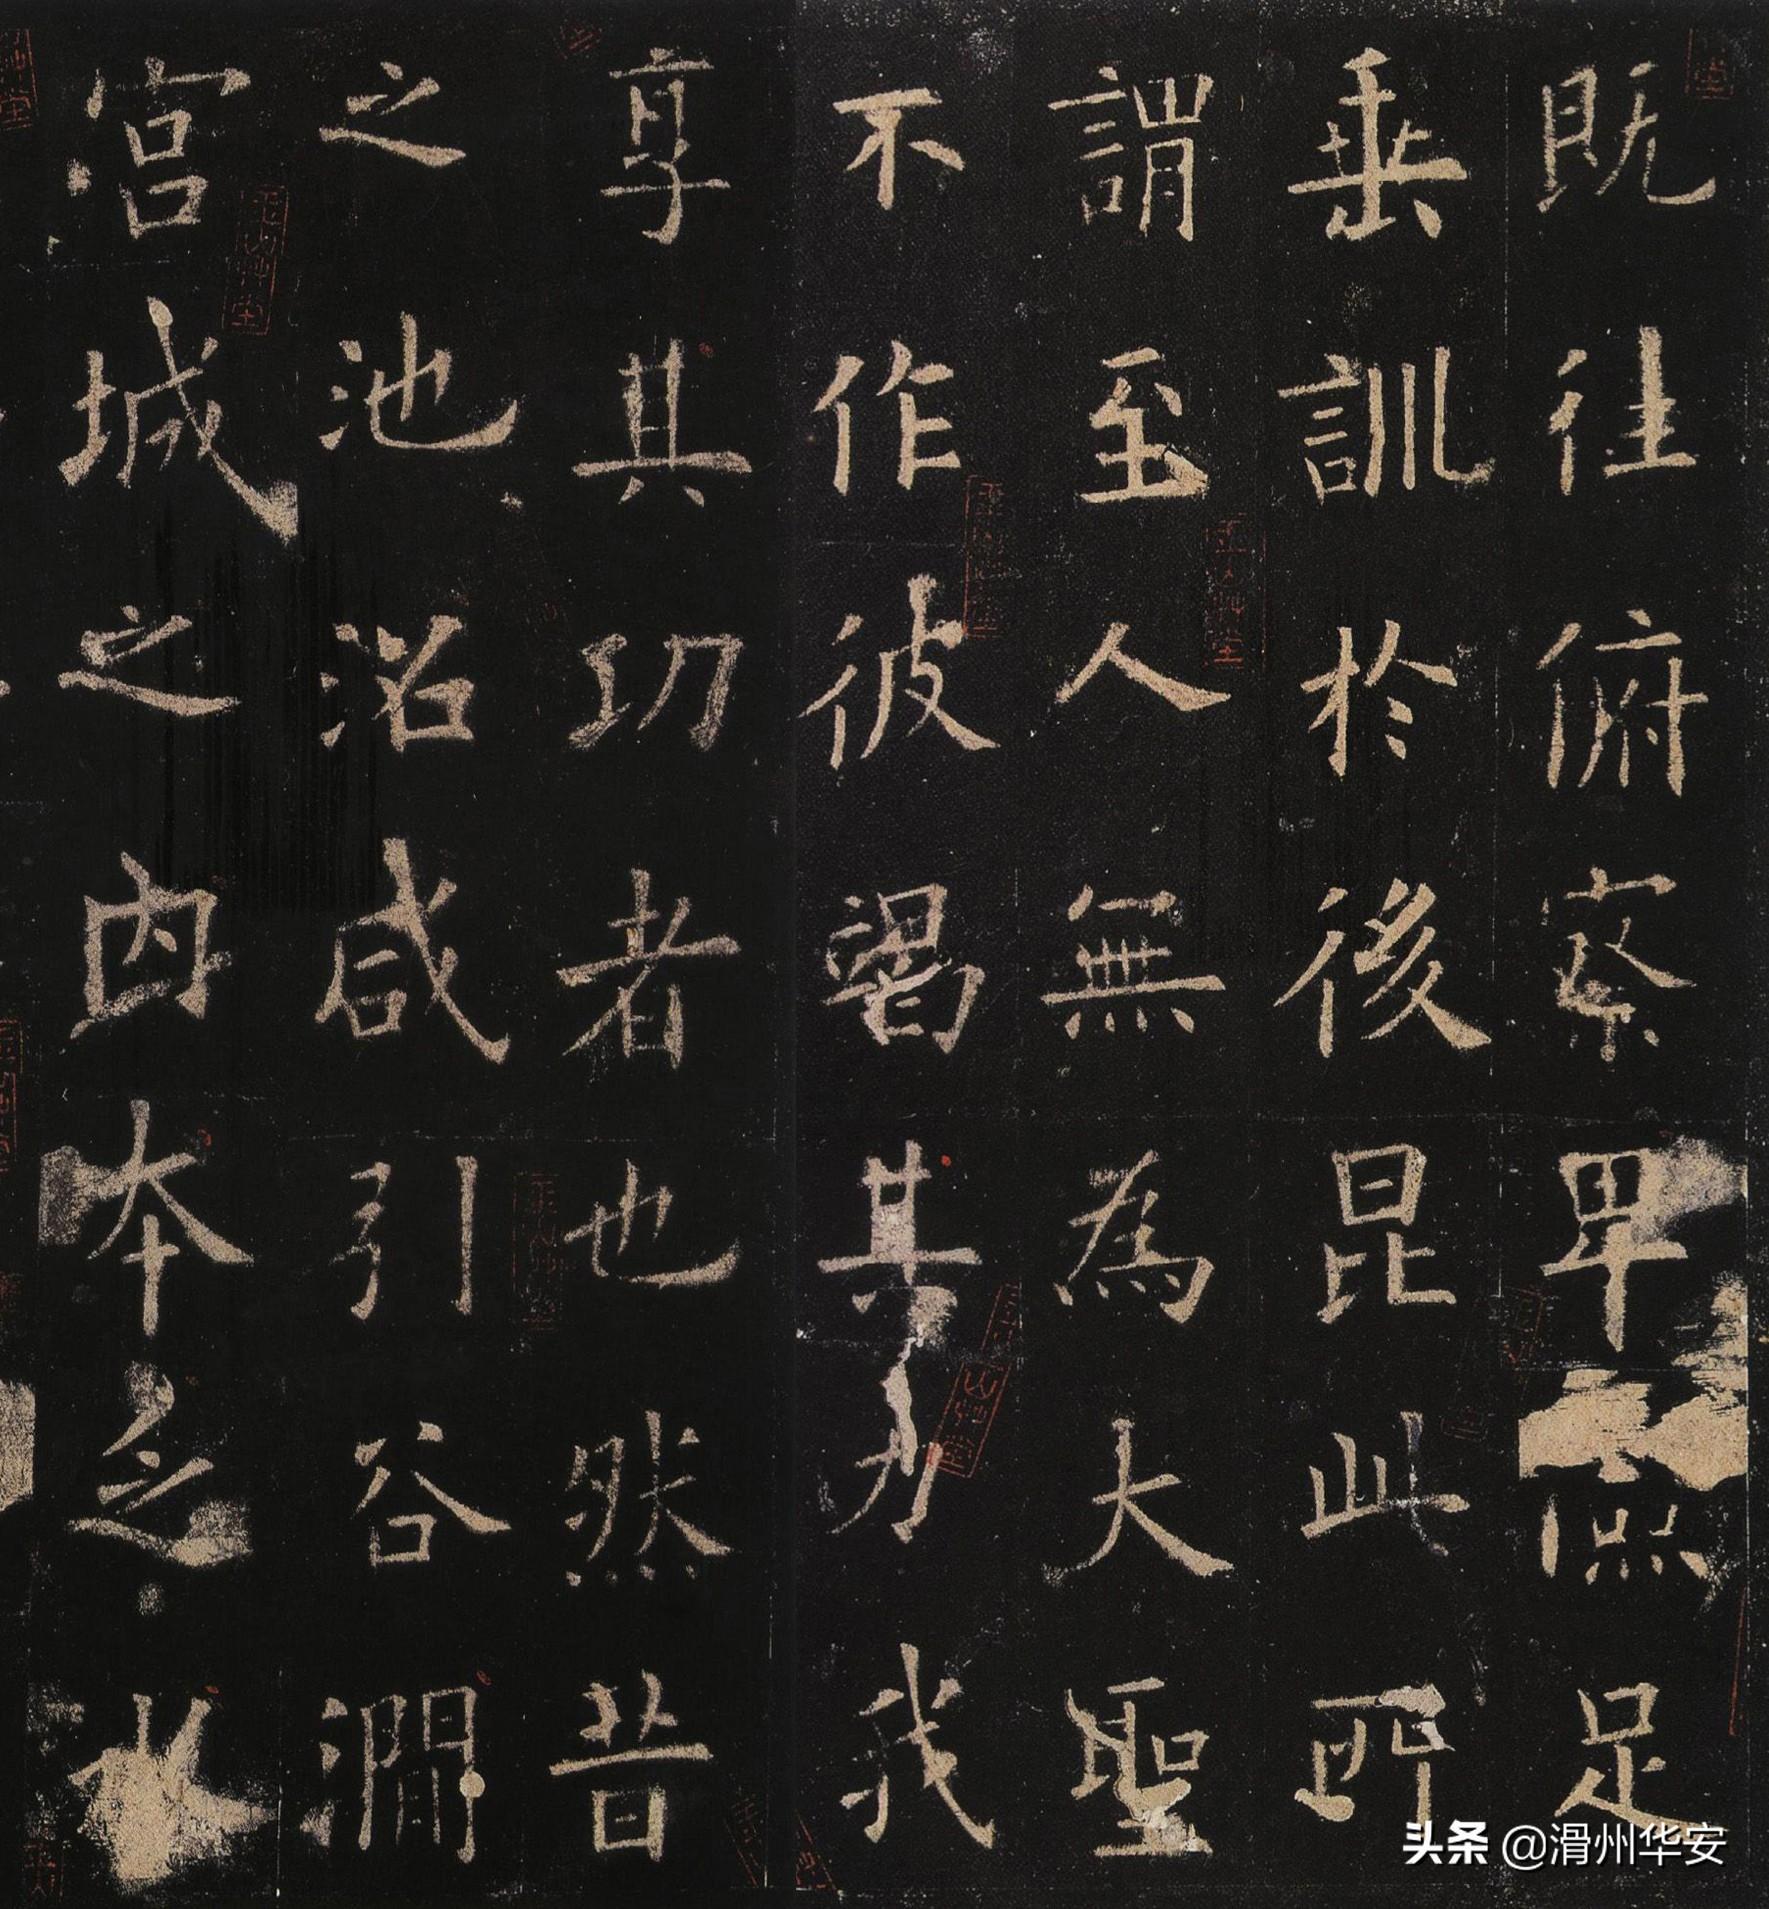 既往俯察卑儉足
垂訓於後昆此所
謂至人無為大聖
不作彼竭其力我
享其功者也然昔
之池沼咸引谷澗
宮城之內本乏水
头条 @滑州华安